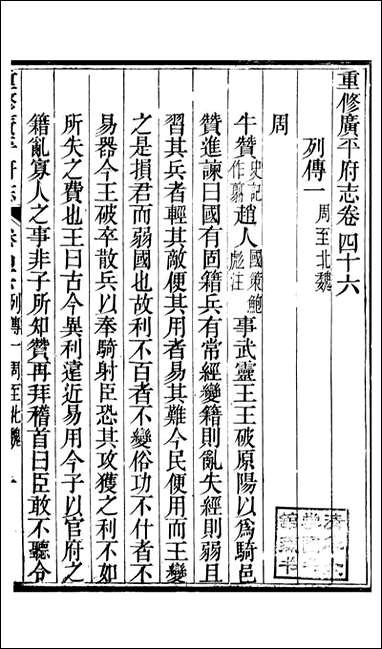 重修廣平府志卷四十六
列傳一 周至北魏
周
牛贊史記作翦趙人國策鮑彪注事武靈王王破原陽以爲騎邑
贊進諫曰國有固籍兵有常經變籍則亂失經則弱且
習其兵者輕其敵便其用者易其難今民便用而王變
之是損君而弱國也故利不百者不變俗功不什者不
易器今王破卒散兵以奉騎射臣恐其攻獲之利不如
所失之費也王曰古今異利遠近易用今子以官府之
籍亂寡人之事非子所知贊再拜稽首曰臣敢不聽令
重修廣平府志 卷四十六 列傳一 周至北魏 一